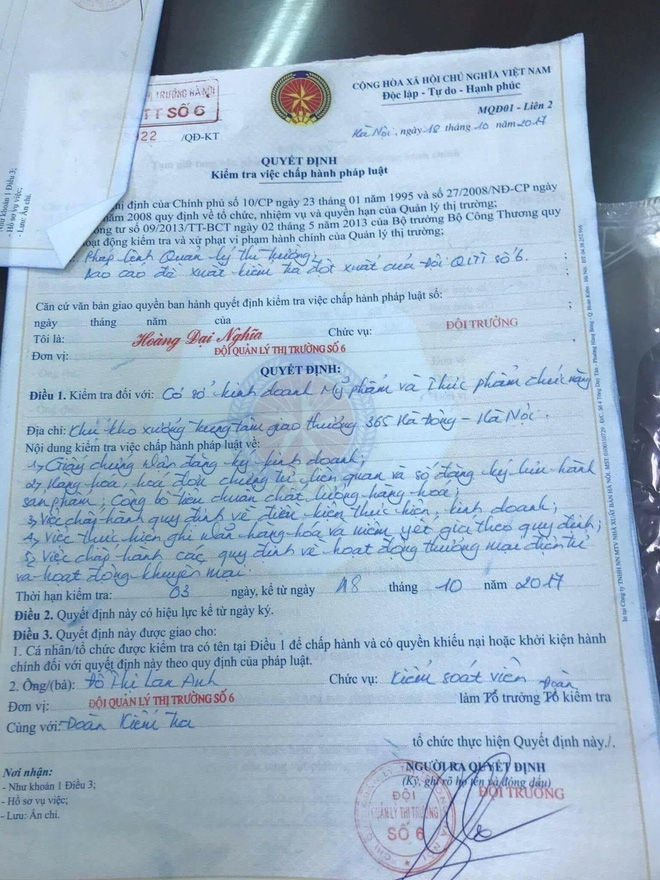 TRƯỜNG HÀ NỘI
TT SỐ 6
22 /QĐ-KT
CỘNG HÒA XÃ HỘI CHỦ NGHĨA VIỆT NAM
Độc lập - Tự do - Hạnh phúc
MQĐ01 - Liên 2
Hà Nội, ngày 18 tháng 10 năm 2017
QUYẾT ĐỊNH
Kiểm tra việc chấp hành pháp luật
định của Chính phủ số 10/CP ngày 23 tháng 01 năm 1995 và số 27/2008/NĐ-CP ngày
năm 2008 quy định về tổ chức, nhiệm vụ và quyền hạn của Quản lý thị trường;
tư số 09/2013/TT-BCT ngày 02 tháng 5 năm 2013 của Bộ trưởng Bộ Công Thương quy
hoạt động kiểm tra và xử phạt vi phạm hành chính của Quản lý thị trường;
Pháp lệnh Quản lý thị trường
Báo cáo đề xuất kiểm tra đột xuất của Đội QLTT số 6.
Căn cứ văn bản giao quyền ban hành quyết định kiểm tra việc chấp hành pháp luật số:
ngày tháng năm của
Tôi là: Hoàng Đại Nghĩa Chức vụ: ĐỘI TRƯỞNG
Đơn vị: ĐỘI QUẢN LÝ THỊ TRƯỜNG SỐ 6
QUYẾT ĐỊNH:
Điều 1. Kiểm tra đối với: Cơ sở kinh doanh Mỹ phẩm và Thực phẩm chức năng
Địa chỉ: Khu kho xưởng trung tâm giao thương 365 Hà Đông - Hà Nội.
Nội dung kiểm tra việc chấp hành pháp luật về:
1, Giấy chứng nhận đăng ký kinh doanh;
2, Hàng hóa, hóa đơn chứng từ liên quan và số đăng ký lưu hành
sản phẩm; Công bố tiêu chuẩn chất lượng hàng hóa;
3, Việc chấp hành quy định về điều kiện kinh doanh;
4, Việc thực hiện ghi nhãn hàng hóa và niêm yết giá theo quy định;
5, Việc chấp hành các quy định về hoạt động thương mại điện tử
và hoạt động khuyến mại.
Thời hạn kiểm tra: 03 ngày, kể từ ngày 18 tháng 10 năm 2017
Điều 2. Quyết định này có hiệu lực kể từ ngày ký.
Điều 3. Quyết định này được giao cho:
1. Cá nhân/tổ chức được kiểm tra có tên tại Điều 1 để chấp hành và có quyền khiếu nại hoặc khởi kiện hành
chính đối với quyết định này theo quy định của pháp luật.
2. Ông/(bà): Đỗ Thị Lan Anh Chức vụ: Kiểm soát viên
Đơn vị: ĐỘI QUẢN LÝ THỊ TRƯỜNG SỐ 6 làm Tổ trưởng Tổ kiểm tra
Đoàn
Cùng với: Đoàn Kiểm tra
tổ chức thực hiện Quyết định này./.
Nơi nhận:
- Như khoản 1 Điều 3;
- Hồ sơ vụ việc;
- Lưu: Ấn chỉ.
NGƯỜI RA QUYẾT ĐỊNH
(Ký, ghi rõ họ tên và đóng dấu)
ĐỘI TRƯỞNG
ĐỘI
QUẢN LÝ THỊ TRƯỜNG
SỐ 6
khoản 1 Điều 3;
- Hồ sơ vụ việc;
- Lưu: Ấn chỉ.